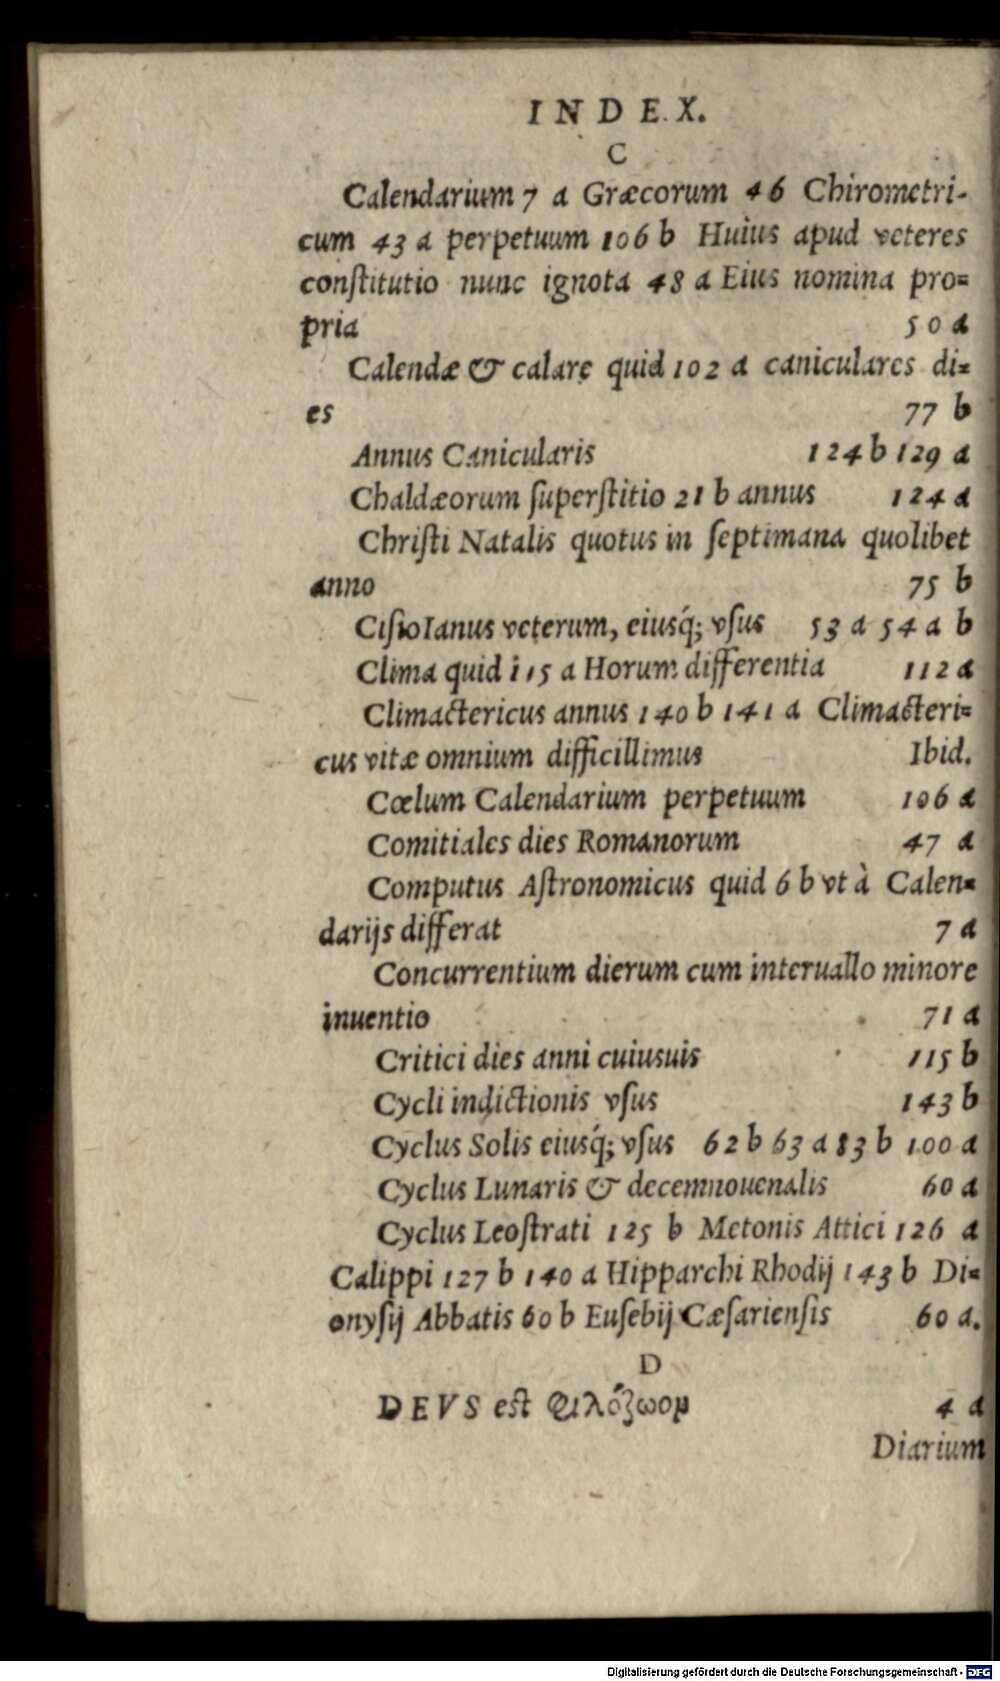 INDEX.
C
Calendarium 7 a Græcorum 46 Chirometri-
cum 43 a perpetuum 106 b Huius apud veteres
conſtitutio nunc ignota 48 a Eius nomina pro=
pria 50 a
Calendæ & calare quid 102 a caniculares di=
es 77 b
Annus Canicularis 124 b 129 a
Chaldæorum ſuperſtitio 21 b annus 124 a
Chriſti Natalis quotus in ſeptimana quolibet
anno 75 b
Ciſio Ianus veterum, eiusq́; vſus 53 a 54 a b
Clima quid 115 a Horum differentia 112 a
Climactericus annus 140 b 141 a Climacteri=
cus vitæ omnium difficillimus Ibid.
Cœlum Calendarium perpetuum 106 a
Comitiales dies Romanorum 47 a
Computus Aſtronomicus quid 6 b vt à Calen=
darijs differat 7 a
Concurrentium dierum cum interuallo minore
inuentio 71 a
Critici dies anni cuiusuis 115 b
Cycli indictionis vſus 143 b
Cyclus Solis eiusq́; vſus 62 b 63 a 83 b 100 a
Cyclus Lunaris & decemnouenalis 60 a
Cyclus Leoſtrati 125 b Metonis Attici 126 a
Calippi 127 b 140 a Hipparchi Rhodij 143 b Di=
onyſij Abbatis 60 b Euſebij Cæſarienſis 60 a.
D
DEVS est 4 a
Diarium
Digitalisierung gefördert durch die Deutsche Forschungsgemeinschaft - DFG